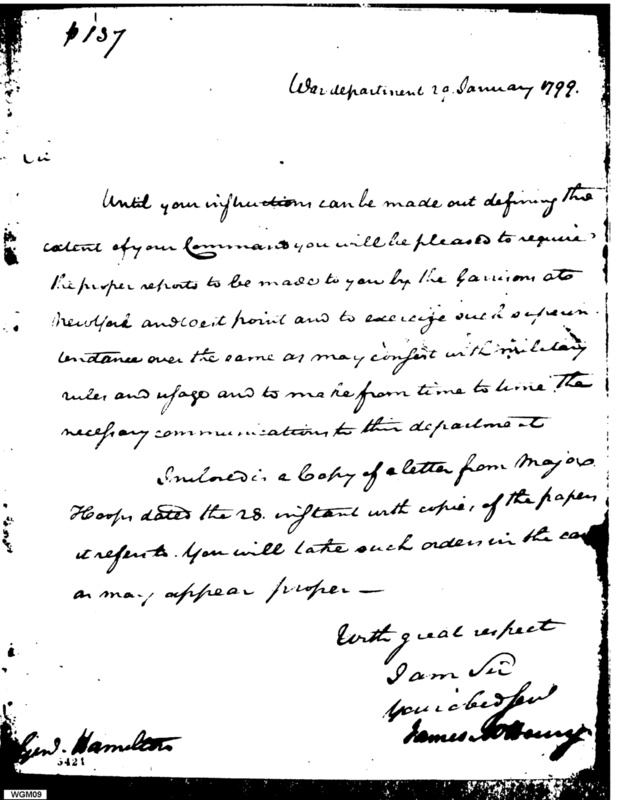 p 137
War department 29. January 1799.
Sir
Until your instructions can be made out defining the
extent of your Command you will be pleased to require
the proper reports to be made to you by the Garrisons at
New York and West point and to exercise such superin-
tendance over the same as may consist with military
rules and usage and to make from time to time the
necessary communications to this department
Inclosed is a Copy of a letter from Major
Hoops dated the 28. instant with copies of the papers
it refers to. You will take such orders in the case
as may appear proper —
With great respect
I am Sir
Your obed Servt
James McHenry
Genl. Hamilton
5421
WGM09